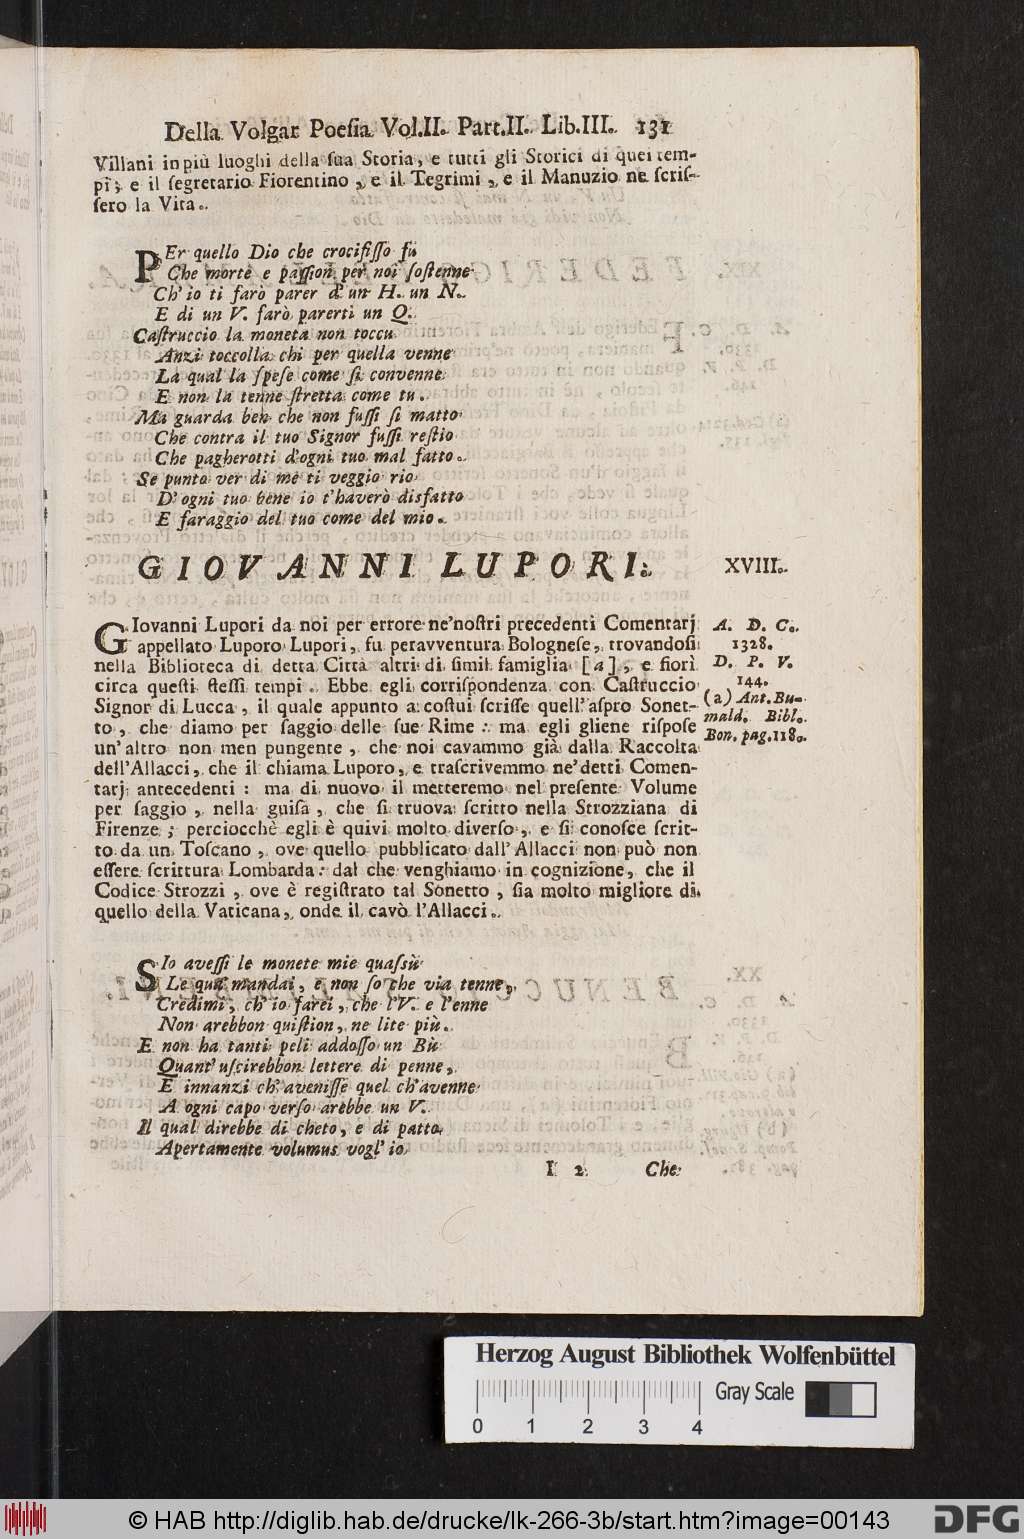 Della Volgar Poesia Vol.II. Part.II. Lib.III. 131
Villani in più luoghi della sua Storia, e tutti gli Storici di quei tem-
pi; e il segretario Fiorentino, e il Tegrimi, e il Manuzio ne scris-
sero la Vita.
PEr quello Dio che crocifisso fù
Che morte e passion per noi sostenne
Ch'io ti farò parer d'un H. un N.
E di un V. farò parerti un Q.
Castruccio la moneta non toccu
Anzi toccolla chi per quella venne
La qual la spese come si convenne
E non la tenne stretta come tu.
Ma guarda ben che non fussi sì matto
Che contra il tuo Signor fussi restio
Che pagherotti d'ogni tuo mal fatto.
Se punto ver di me ti veggio rio
D'ogni tuo bene io t'haverò disfatto
E faraggio del tuo come del mio.
GIOVANNI LUPORI.
XVIII.
GIovanni Lupori da noi per errore ne'nostri precedenti Comentarj
appellato Luporo Lupori, fu peravventura Bolognese, trovandosi
nella Biblioteca di detta Città altri di simil famiglia [a], e fiorì
circa questi stessi tempi. Ebbe egli corrispondenza con Castruccio
Signor di Lucca, il quale appunto a costui scrisse quell'aspro Sonet-
to, che diamo per saggio delle sue Rime: ma egli gliene rispose
un'altro non men pungente, che noi cavammo già dalla Raccolta
dell'Allacci, che il chiama Luporo, e trascrivemmo ne'detti Comen-
tarj antecedenti: ma di nuovo il metteremo nel presente Volume
per saggio, nella guisa, che si truova scritto nella Strozziana di
Firenze; perciocchè egli è quivi molto diverso, e si conosce scrit-
to da un Toscano, ove quello pubblicato dall'Allacci non può non
essere scrittura Lombarda: dal che venghiamo in cognizione, che il
Codice Strozzi, ove è registrato tal Sonetto, sia molto migliore di
quello della Vaticana, onde il cavò l'Allacci.
A. D. C.
1328.
D. P. V.
144.
(a) Ant. Bu-
mald. Bibl.
Bon. pag.118.
SIo avessi le monete mie quassù
Le qua' mandai, e non so che via tenne,
Credimi, ch'io farei, che l'V. e l'enne
Non arebbon quistion, ne lite più.
E non ha tanti peli addosso un Bù
Quant'uscirebbon lettere di penne,
E innanzi ch'avenisse quel ch'avenne
A ogni capo verso arebbe un V.
Il qual direbbe di cheto, e di patto
Apertamente volumus vogl'io
I 2 Che
Herzog August Bibliothek Wolfenbüttel
Gray Scale
0 1 2 3 4
© HAB http://diglib.hab.de/drucke/lk-266-3b/start.htm?image=00143
DFG